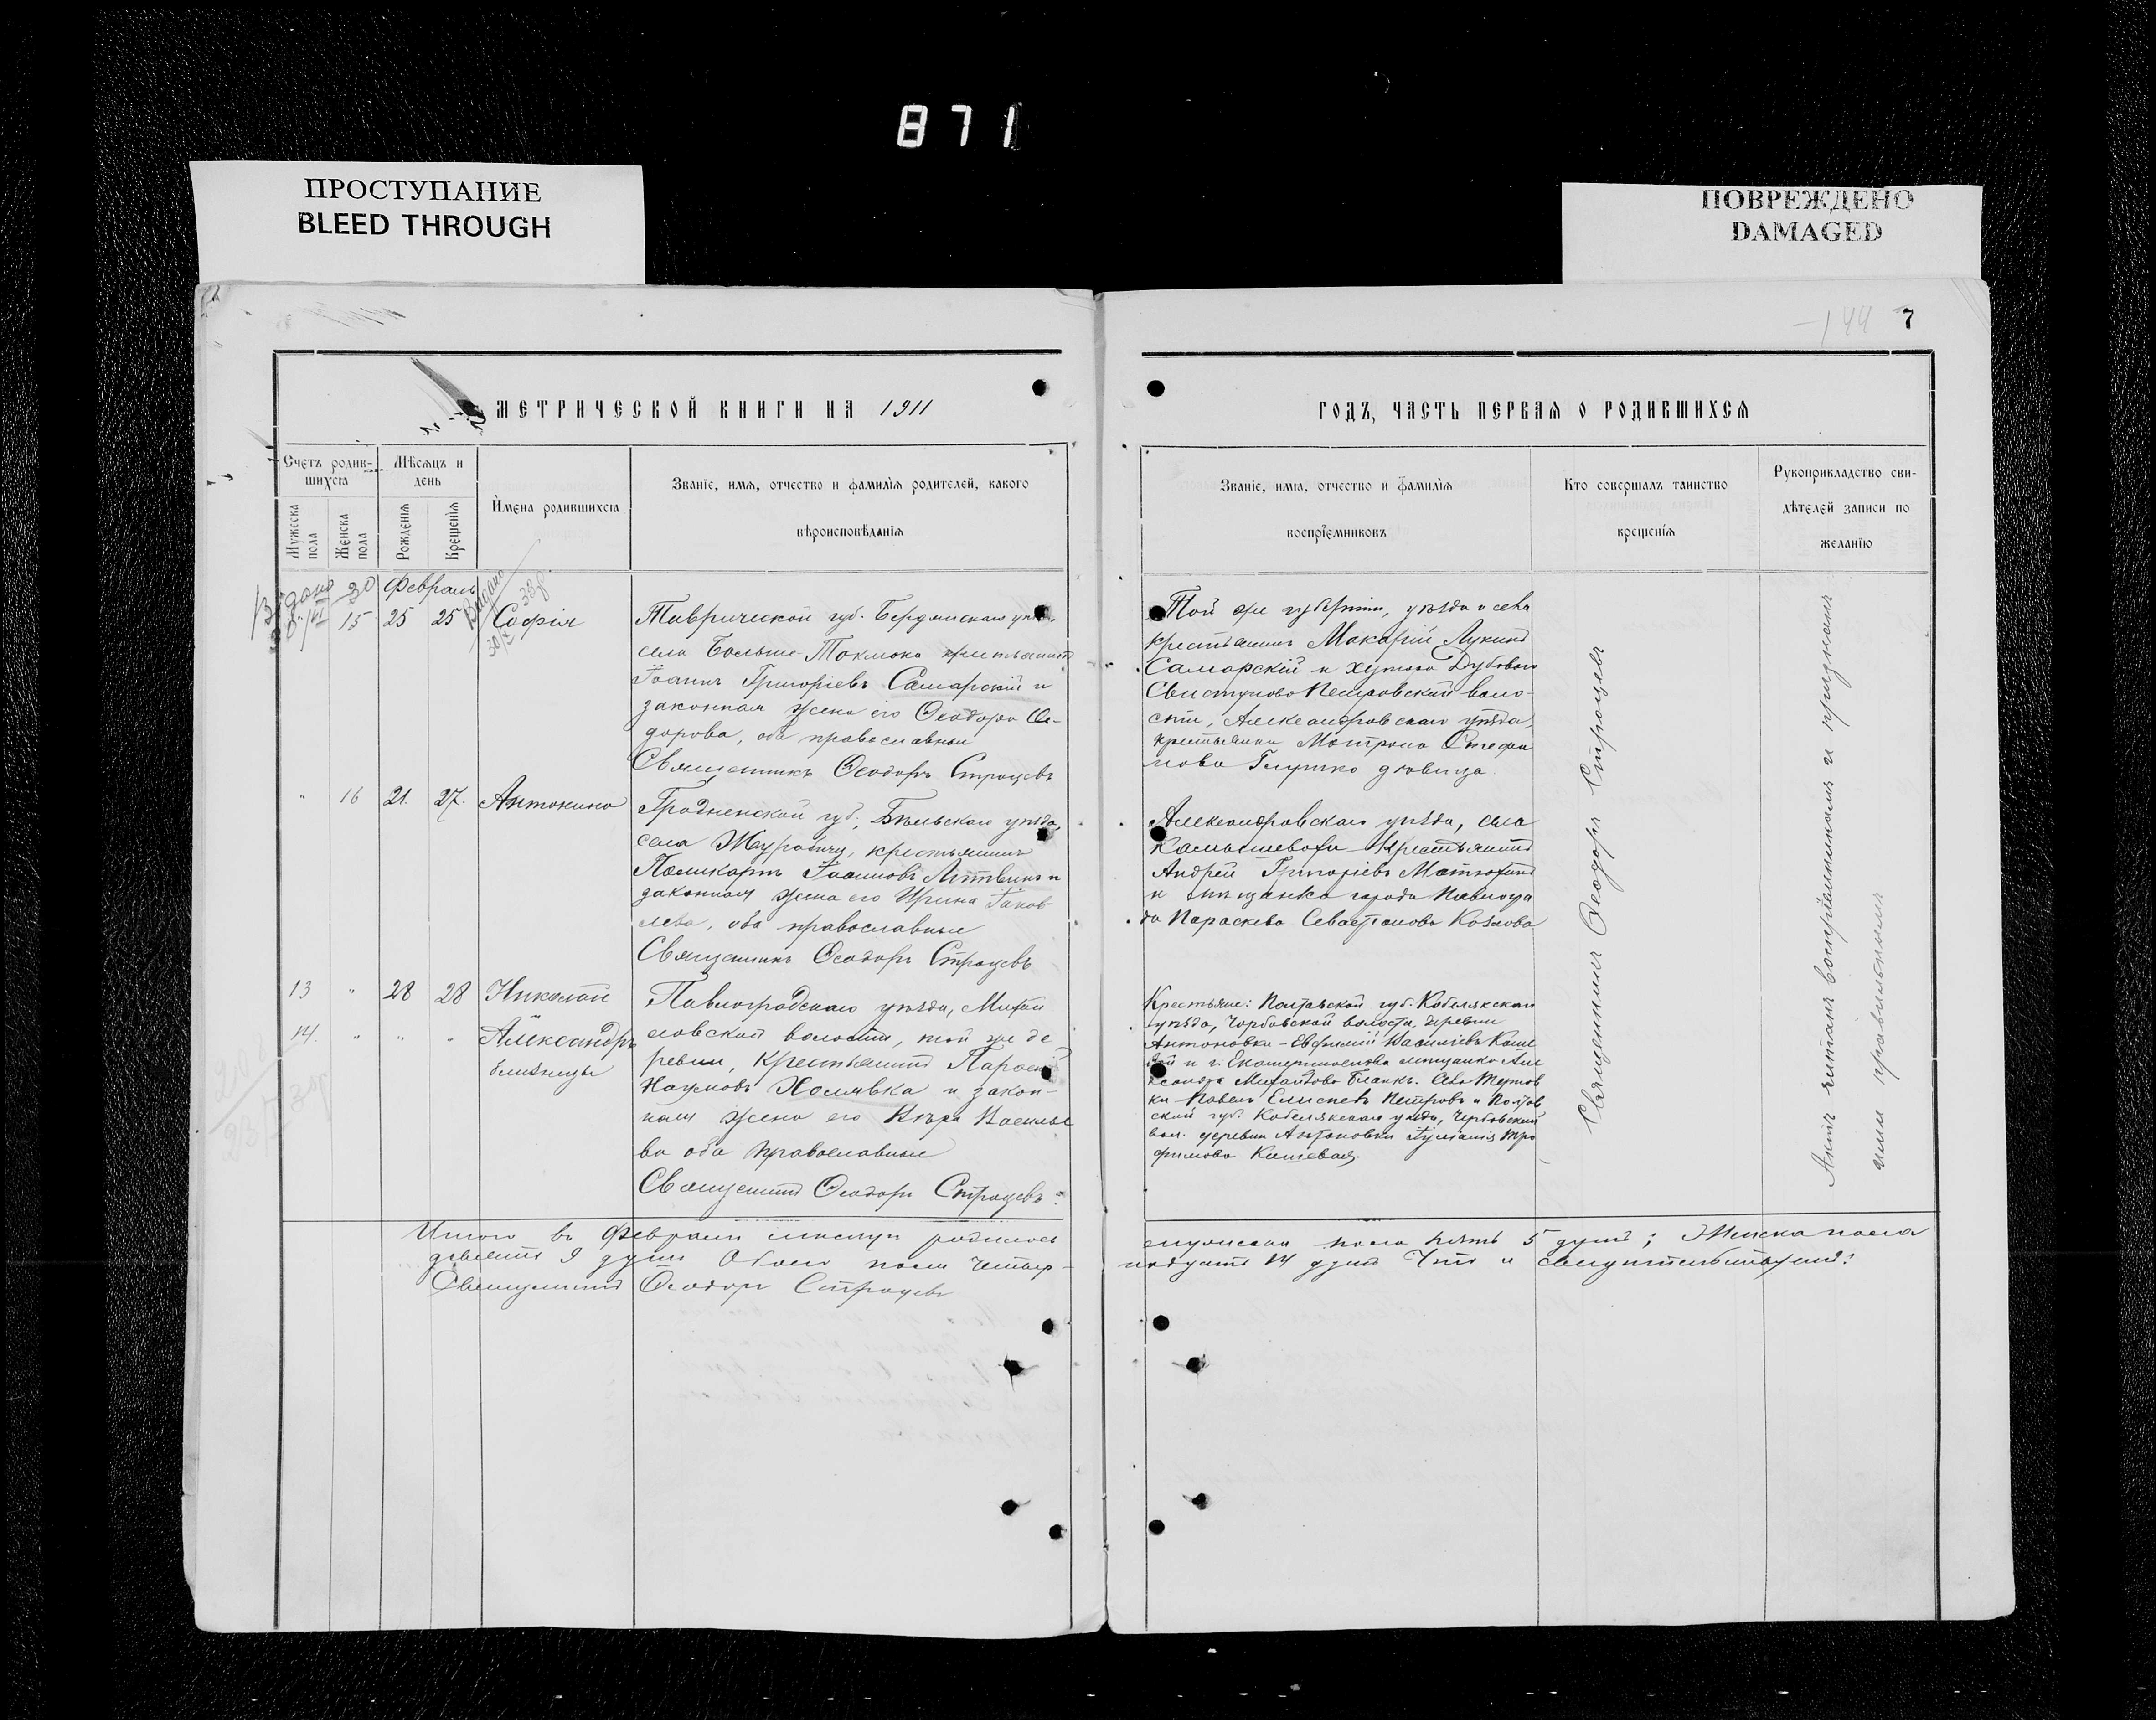 871
ПРОСТУПАНИЕ
BLEED THROUGH
ПОВРЕЖДЕНО
DAMAGED
144 7
МЕТРИЧЕСКОЙ КНИГИ НА 1911
ГОДЪ, ЧАСТЬ ПЕРВАЯ О РОДИВШИХСЯ
Счетъ родив-
шихся
Мужеска пола
Женска пола
Мѣсяцъ и
день
Рожденія
Крещенія
Имена родившихся
Званіе, имя, отчество и фамилія родителей, какого
вѣроисповѣданія
Званіе, имя, отчество и фамилія
воспріемниковъ
Кто совершалъ таинство
крещенія
Рукоприкладство сви-
дѣтелей записи по
желанію
Февраль
" 15 25 25 Софія
Таврической губ. Бердянскаго
села Больше-Токмока крестьянинъ
Іоаннъ Григоріевъ Самарскій и
законная жена его Ѳеодора Ѳе-
дорова, оба православные
Священникъ Ѳеодоръ Строцевъ
Той же губерніи, уѣзда и села
крестьянинъ Макарій Лукинъ
Самарскій и хутора Дубоваго
Свистуново Петровской воло-
сти, Александровскаго уѣзда,
крестьянка Матрона Стефа
нова Глушко дѣвица
" 16 21. 27. Антонина
Гродненской губ., Бѣльскаго уѣзда,
села крестьянинъ
Поликарпъ Іоанновъ Литвинъ и
законная жена его Ирина Іаков-
лева, оба православные
Священникъ Ѳеодоръ Строцевъ
Александровскаго уѣзда, села
Камышевахи крестьянинъ
Андрей Григоріевъ
и мѣщанка города Павлогра
да Параскева Севастіанова Козлова
13 " 28 28 Николай
14. " " " Александръ
близнецы
Павлоградскаго уѣзда, Михай
ловской волости, той же де
ревни, крестьянинъ
Наумовъ Холявка и закон-
ная жена его Вѣра Василье
ва оба православные
Священникъ Ѳеодоръ Строцевъ
Крестьяне: Полтавской губ. Кобелякскаго
уѣзда, волости, деревни
Антоновки – Евфимій Василіевъ Коше
вой и г. Екатеринослава мѣщанка Але
ксандра Михайлова Бланкъ.
Павелъ Елисеевъ Петровъ и Полтав
ской губ. Кобелякскаго уѣзда,
вол. деревни Антоновки Іуліанія Тро
фимова Кошевая.
Священникъ Ѳеодоръ Строцевъ
Актъ читанъ воспріемникамъ и признанъ
ими правильнымъ
Итого въ Февралѣ мѣсяцѣ родилось
мужеска пола пять 5 душъ; Женска пола
девять 9 душъ Обоего пола четыр-
надцать 14 душъ Что и свидѣтельствуемъ:
Священникъ Ѳеодоръ Строцевъ